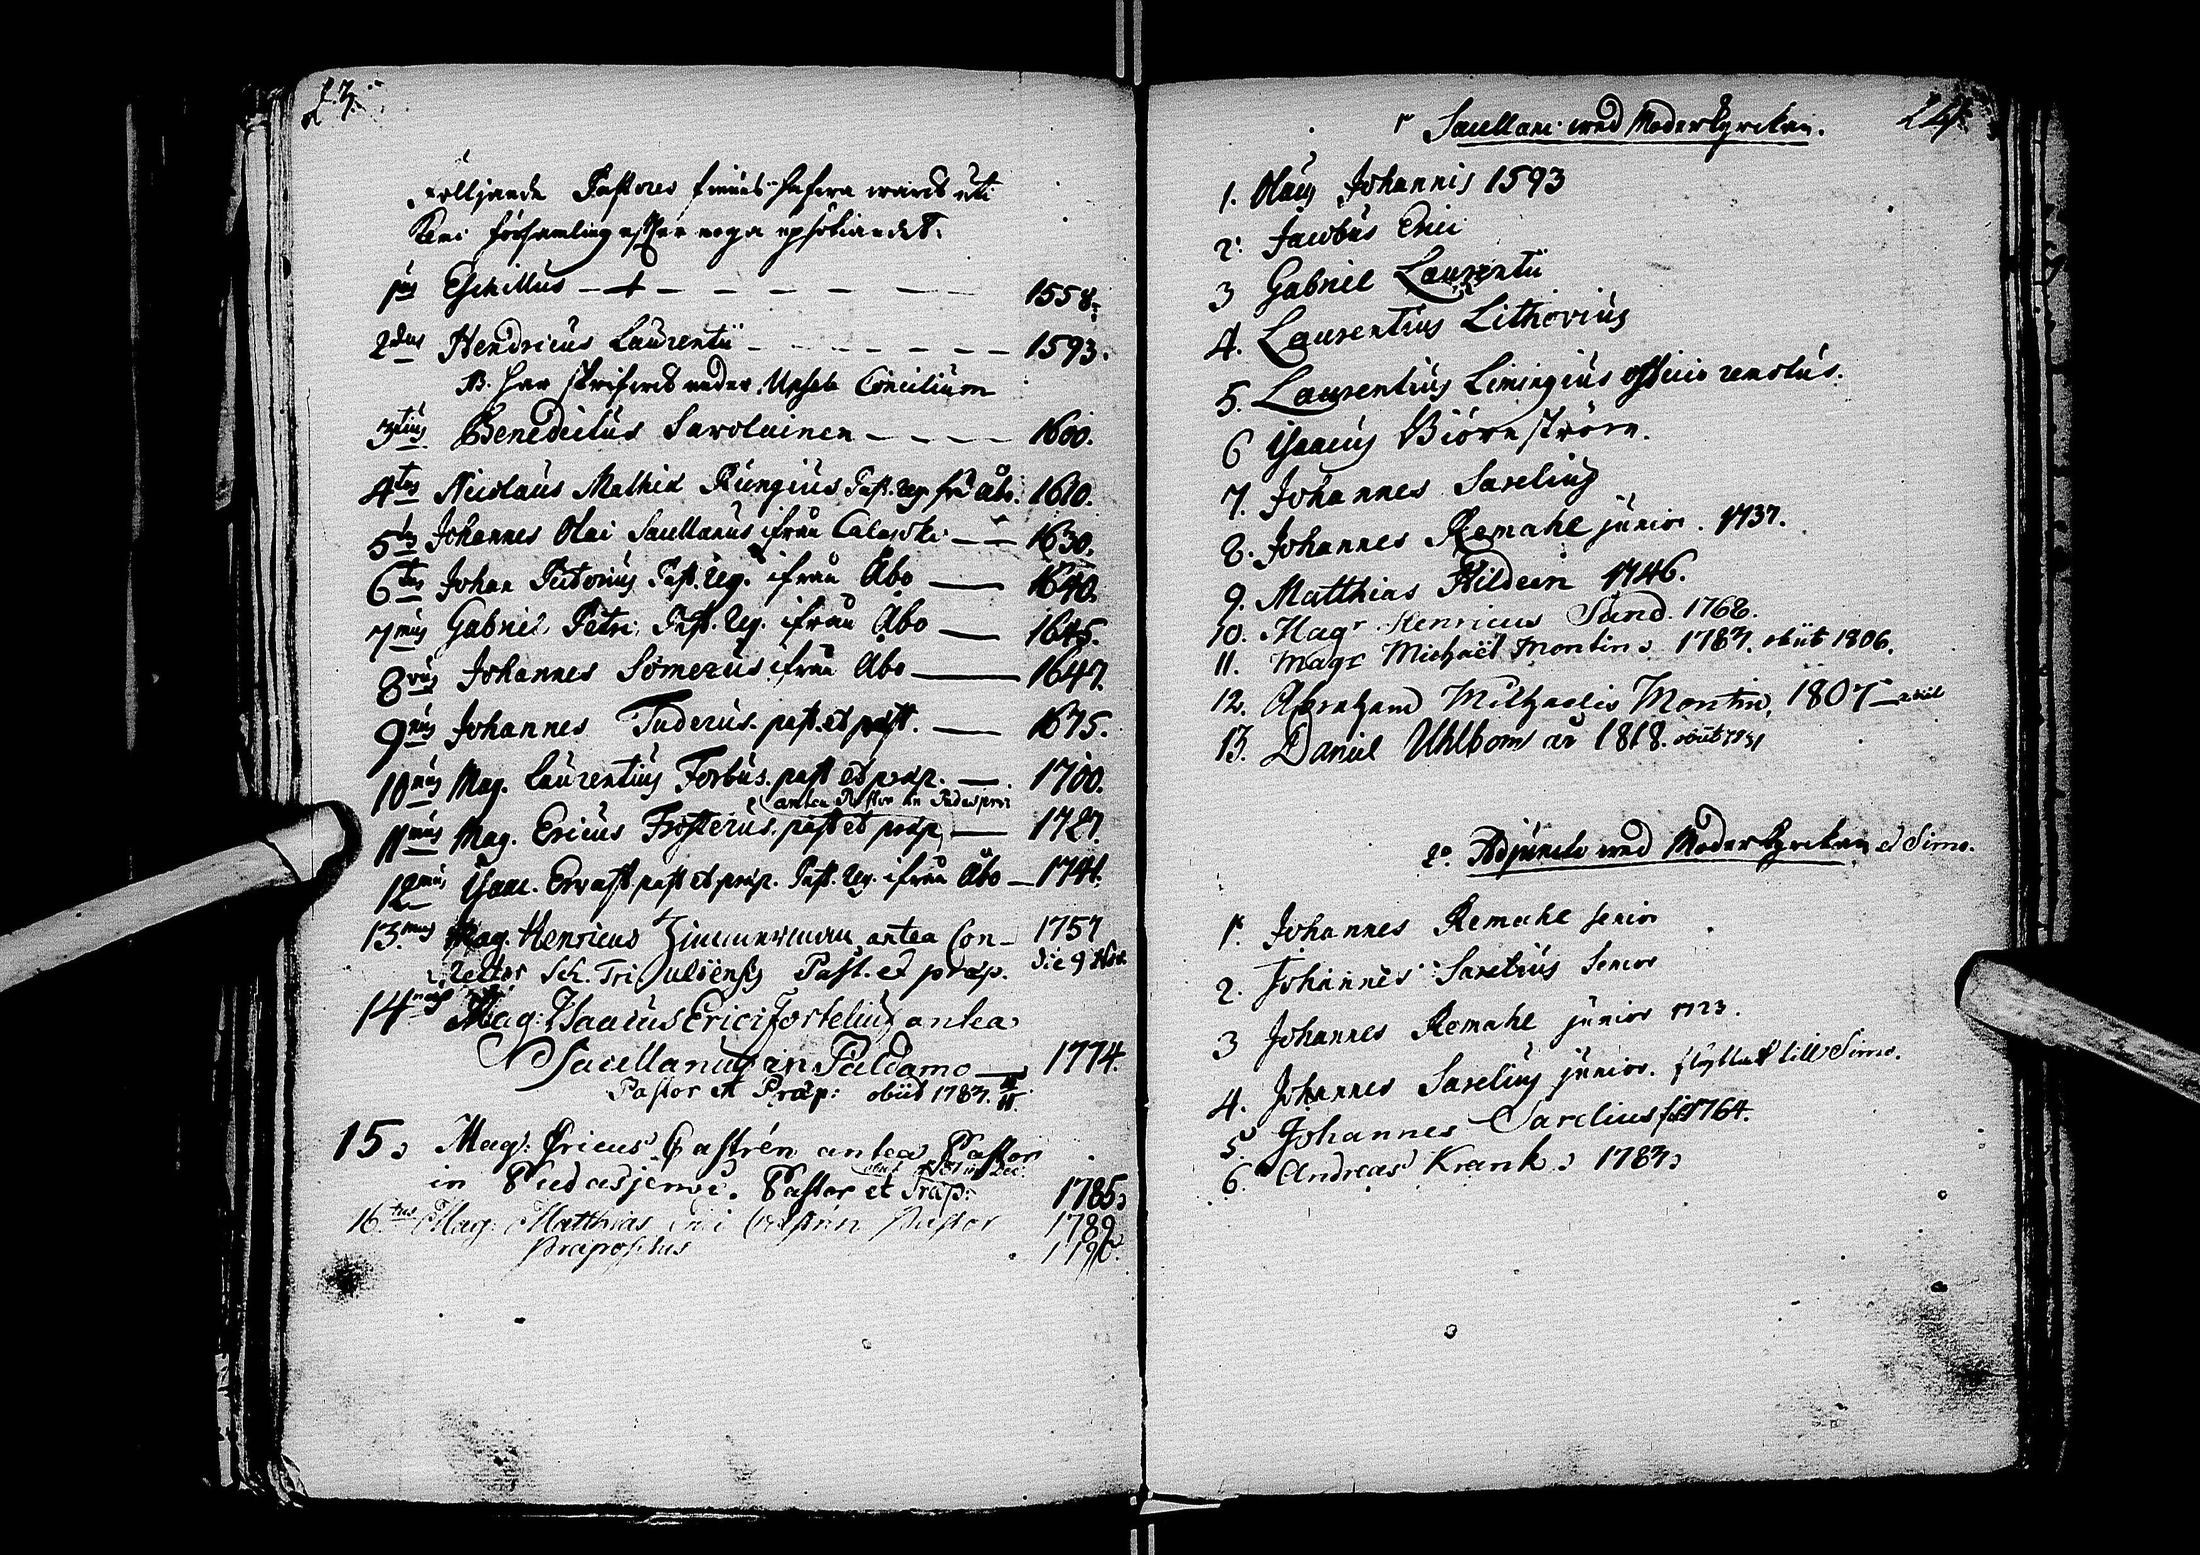 23.
Följande Pastores finnas hafwa warit uti
Kemi församling efter noga upsökiandet.
1mus Eschillus — — — — — — 1558.
2dus Hendricus Laurentii — — — — — — 1593.
NB. har skrifwit under Upsala Concilium
3tius Benedictus Savolainen — — — — 1600.
4tus Nicolaus Mathiæ Rungius Past. Reg. frå Åbo. 1610.
5tus Johannes Olai Sacellanus ifrån Calajoki — — 1630.
6tus Johan Tutorius Past. Reg. ifrån Åbo — 1640.
7mus Gabriel Petri, Past. Reg. ifrån Åbo — 1645.
8vus Johannes Somerus ifrån Åbo — 1647.
9nus Johannes Tuderus. past. et præp. — 1675.
10mus Mag. Laurentius Forbus. past et præp. — 1700.
antea Pastor in Pudasjervi
11mus Mag. Ericus Frosterus. past et præp. — 1727.
12mus Isaac. Ervast. past et præp. Past. Reg. ifrån Åbo — 1741.
13.mus Mag. Henricus Zimmerman antea Con- 1757
Rector Sch. Tri. Uloënsis Past. et præp. die 9 Nov.
14mus Mag: Isacus Erici Fortelius antea
Sacellanus in Paldamo — 1774.
Pastor et Præp: obiit 1783.
15. Mag. Ericus Castrén antea Pastor
in Pudasjervi. Pastor et Præp: 1785.
16.tus Mag: Matthias Erici Castrén Pastor 1789
Præpositus 1790.
24
1° Sacellani wid Moderkyrckan.
1. Olaus Johannis 1593
2. Jacobus Erici
3 Gabriel Laurentii
4. Laurentius Lithovius
5. Laurentius Limingius officio remotus.
6 Isaacus Biörnström.
7. Johannes Sarelius
8. Johannes Remahl junior. 1737.
9. Matthias Hildeen 1746.
10. Magr Henricus Sund. 1768.
11. Magr Michaël Montin. 1783. obiit 1806.
12. Abraham Michaelis Montin, 1807
13. Daniel Uhlbom år 1818. obiit 1831
2° Adjuncti wid Moderkyrckan et Simo.
1. Johannes Remahl senior
2. Johannes Sarelius Senior
3 Johannes Remahl junior 1723.
4. Johannes Sarelius junior. flyttat till Simo.
5. Johannes Sarelius fil. 1764.
6. Andreas Krank. 1783.